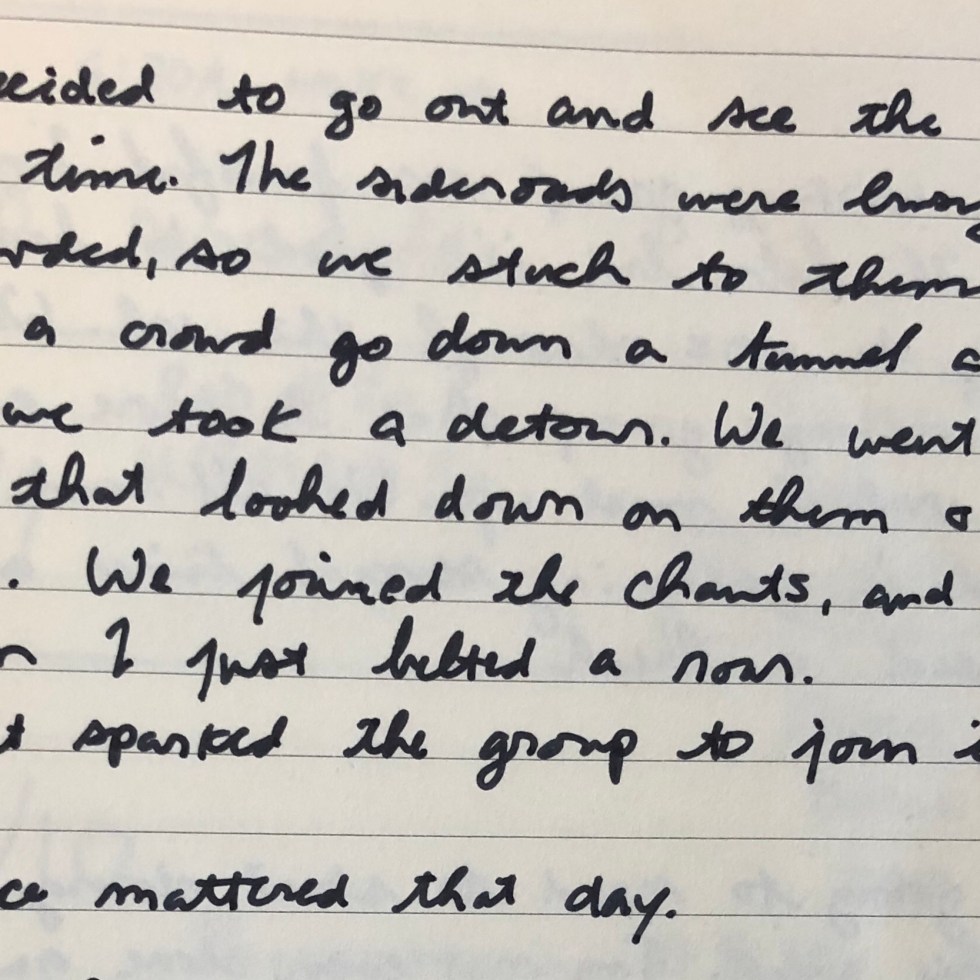 ecided to go out and see the
time. The sideroads were busy
wded, so we stuck to them
a crowd go down a tunnel a
we took a detour. We went
that looked down on them a
. We joined the chants, and
n I just belted a roar.
t sparked the group to join i
ce mattered that day.